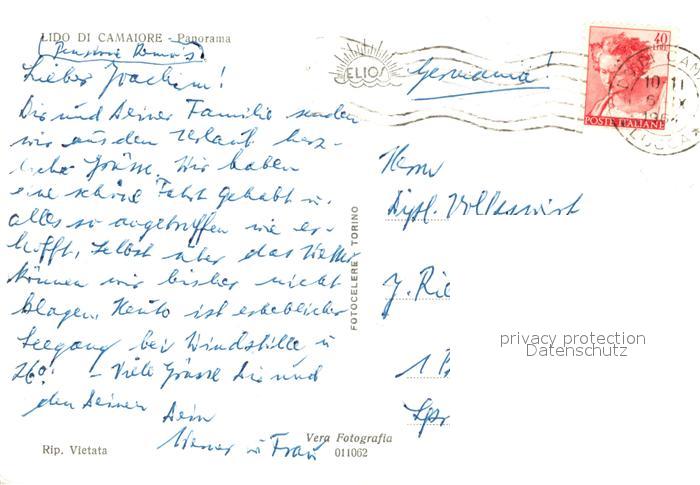 LIDO DI CAMAIORE - Panorama
(Pension
Lieber Joachim!
Dir und Deiner Familie senden
wir aus dem Urlaub herz-
liche Grüsse. Wir haben
eine schöne Fahrt gehabt u.
alles so angetroffen wie er-
hofft, selbst über das Wetter
können wir bisher nicht
klagen. Heute ist erheblicher
Seegang bei Windstille u
26°! - Viele Grüsse Dir und
den Deinen Dein
Werner u Frau
Rip. Vietata
Vera Fotografia
011062
FOTOCELERE TORINO
ELIOS
Germania!
40
LIRE
POSTE ITALIANE
10-11
Herrn
Dipl. Volkswirt
J. Rie
1 B
Spr
privacy protection
Datenschutz